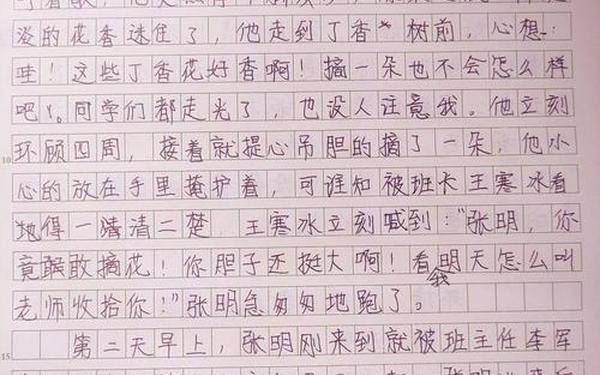 淡的花香迷住了，他走到丁香树前，心想：
哇！这些丁香花好香啊！摘一朵也不会怎么样
吧！。同学们都走光了，也没人注意我。他立刻
10 环顾四周，接着就提心吊胆的摘了一朵，他小
心的放在手里掩护着，可谁知被班长王寒冰看
地得一清清二楚 王寒冰立刻喊到："张明，你
竟敢敢摘花！你胆子还挺大啊！看我明天怎么叫
老师收拾你！"张明急匆匆地跑了。
15 第二天早上，张明刚来到就被班主任李军